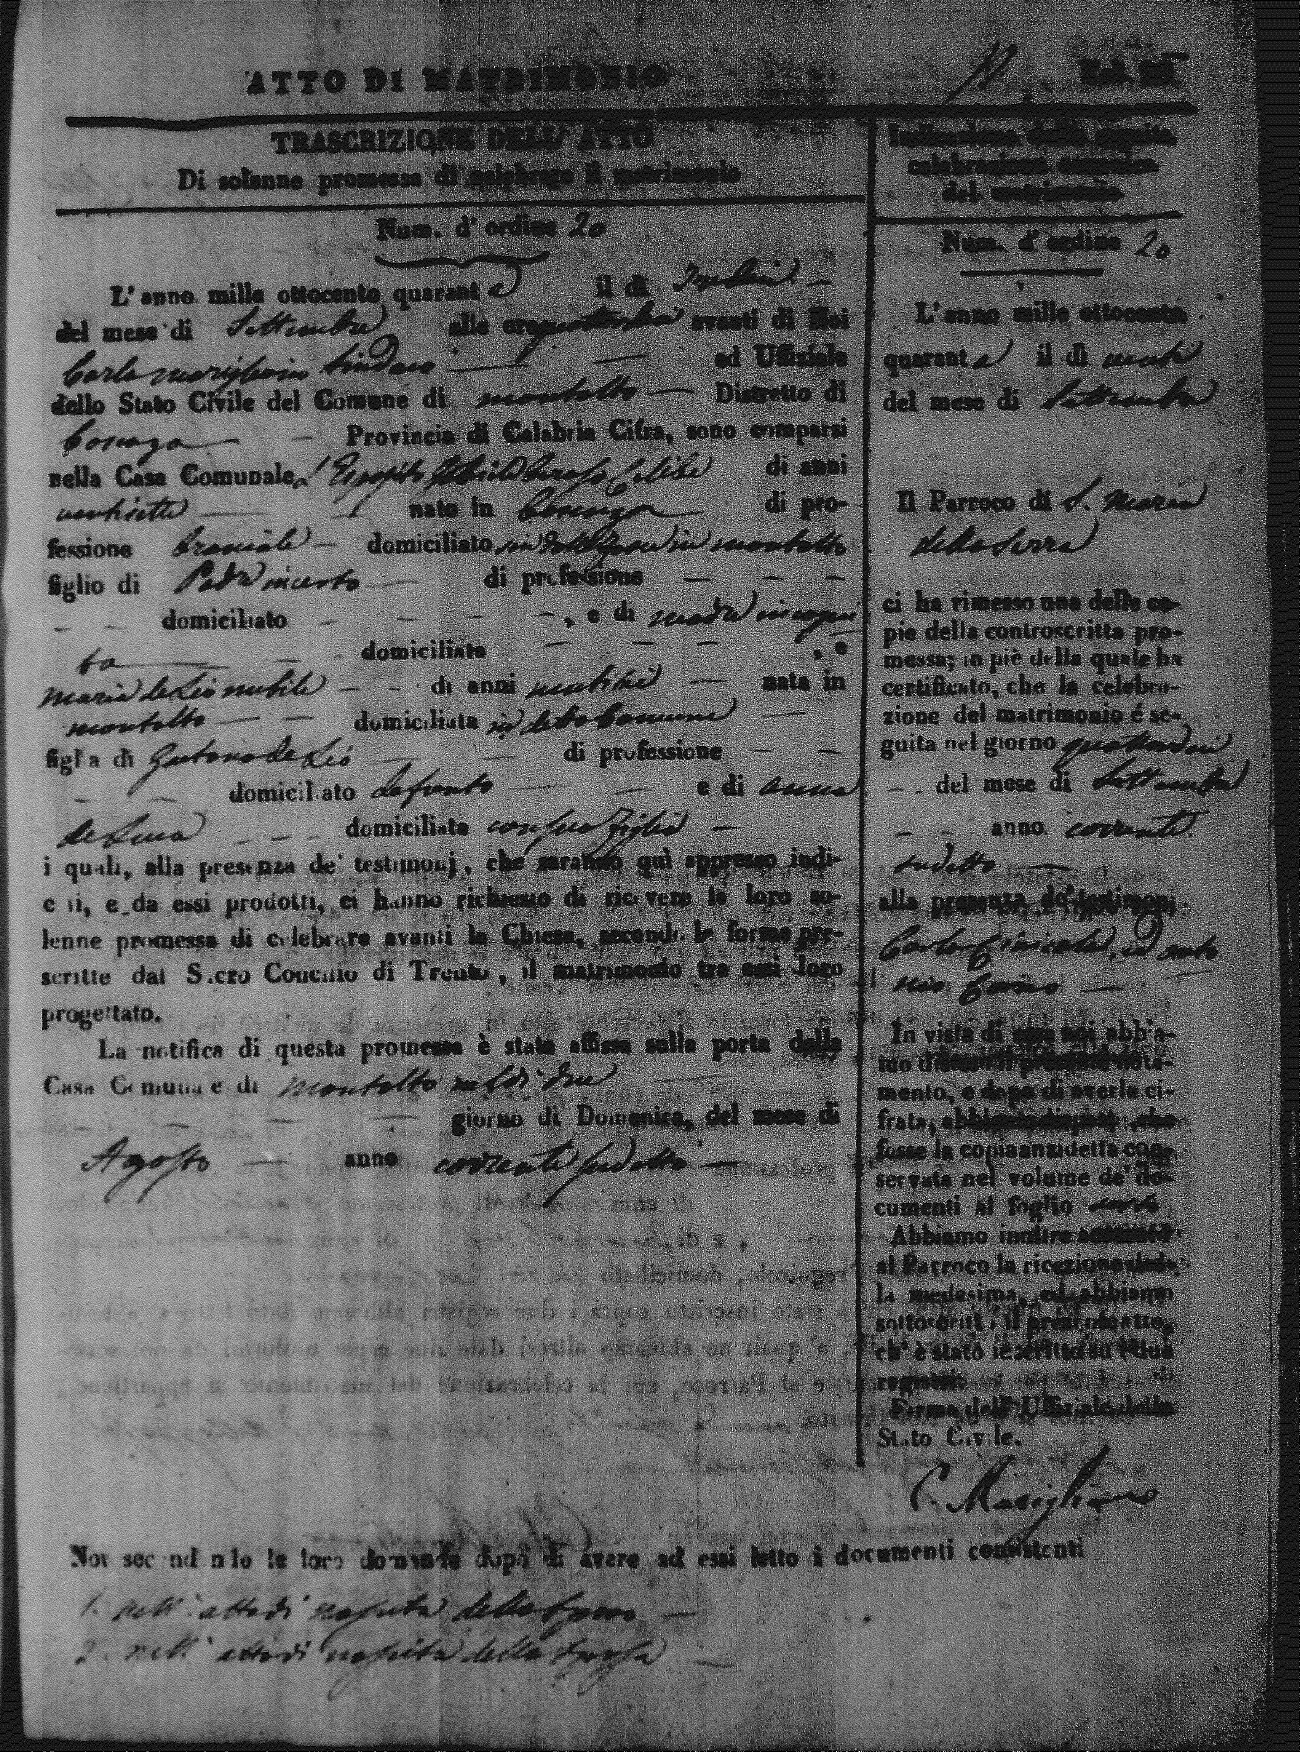 ATTO DI MATRIMONIO
TRASCRIZIONE DELL' ATTO
Di solenne promessa di celebrare il matrimonio
Num. d' ordine 20
L' anno mille ottocento quaranta il di Tredici
del mese di Settembre alle ore avanti di Noi
Carlo Marigliano Sindaco ed Uffiziale
dello Stato Civile del Comune di Montalto Distretto di
Cosenza Provincia di Calabria Citra, sono comparsi
nella Casa Comunale di anni
ventisette nato in Cosenza di pro-
fessione Bracciale domiciliato in Montalto
figlio di Padre incerto di professione
domiciliato , e di madre incogni
ta domiciliata , e
Maria de Lio nubile di anni nata in
Montalto domiciliata in detto Comune
figlia di Gaetano de Lio di professione
domiciliato defunto e di Anna
de Luca domiciliata con sua figlia
i quali, alla presenza de' testimonj, che saranno quì appresso indi-
cati, e da essi prodotti, ci hanno richiesto di ricevere la loro so-
lenne promessa di celebrare avanti la Chiesa, secondo le forme pre-
scritte dal Sacro Concilio di Trento, il matrimonio tra essi loro
progettato.
La notifica di questa promessa è stata affissa sulla porta della
Casa Comunale di Montalto nel dì due
giorno di Domenica, del mese di
Agosto anno corrente sudetto
Noi secondando le loro domande dopo di avere ad essi letto i documenti consistenti
1. nell' atto di nascita dello Sposo
2. nell' atto di nascita della Sposa
Indicazione della seguita
celebrazione canonica
del matrimonio
Num. d' ordine 20
L' anno mille ottocento
quaranta il di venti
del mese di Settembre
Il Parroco di S. Maria
della Serra
ci ha rimesso una delle co-
pie della controscritta pro-
messa; in piè della quale ha
certificato, che la celebra-
zione del matrimonio é se-
guita nel giorno quattordici
del mese di Settembre
anno corrente
sudetto
alla presenza de' testimonj
Carlo ed Anto
nio
In vista di essa noi abb'a-
mo disteso il presente nota-
mento, e dopo di averla ci-
frata, abbiamo disposto, che
fosse la copia anzidetta con-
servata nel volume de' do-
cumenti al foglio
Abbiamo inoltre
al Parroco la ricezione del-
la medesima, ed abbiamo
sottoscritto il presente atto,
ch' è stato iscritto su i due
registri.
Firma dell' Uffiziale dello
Stato Civile.
C. Marigliano